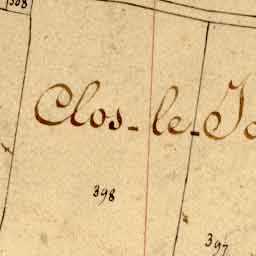 308
Clos-le-Jo
398
397